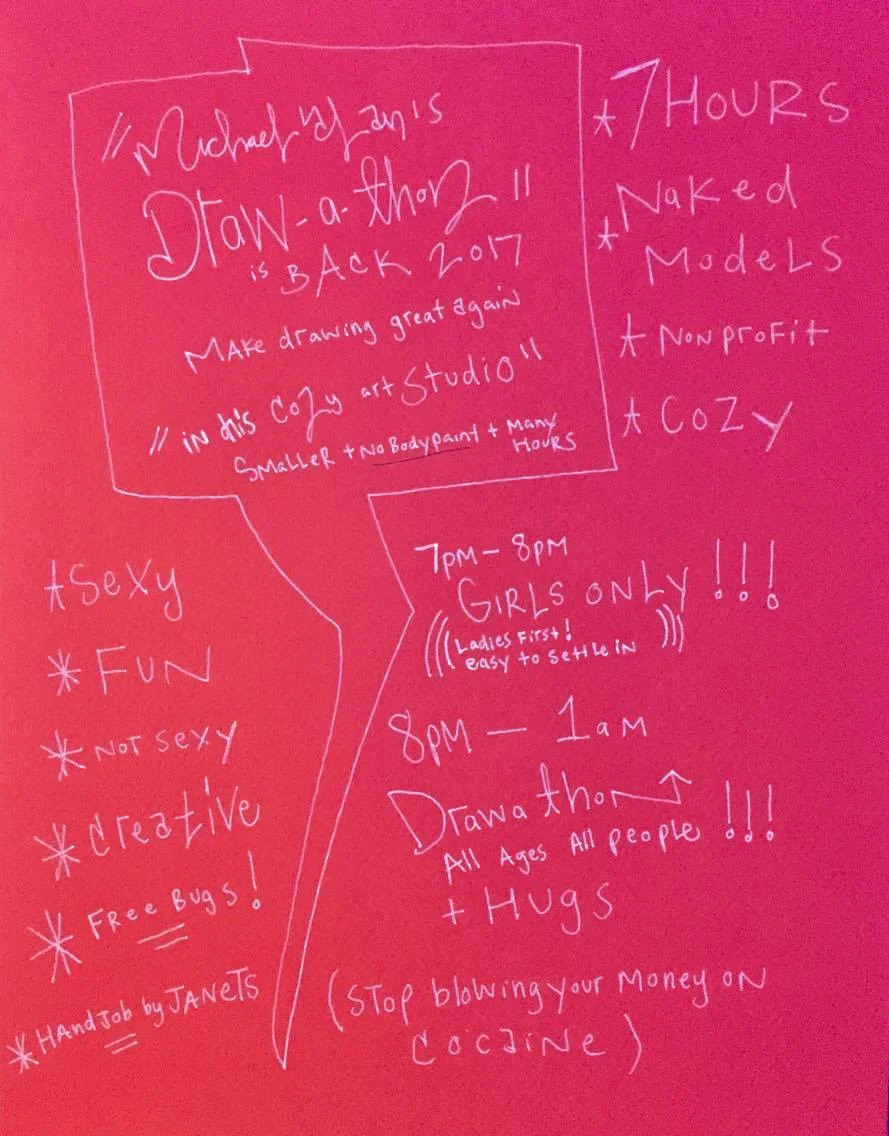 "Michael Alan's
Draw-a-thon"
is BACK 2017
MAKe drawing great again
"in his Cozy art Studio"
SMalleR + No Bodypaint + Many HOURS
*7 HOURS
*Naked
Models
*NonproFit
*COZY
*Sexy
*FUN
*NOT Sexy
*Creative
*FRee BUgS!
*HAndJob by JANeTS
7pm - 8pm
GIRLS ONLY!!!
(((Ladies First!
easy to Settle in)))
8pm - 1am
Drawathon!!!
All Ages All people
+ HUgS
(STop blowing your Money on
Cocaine)